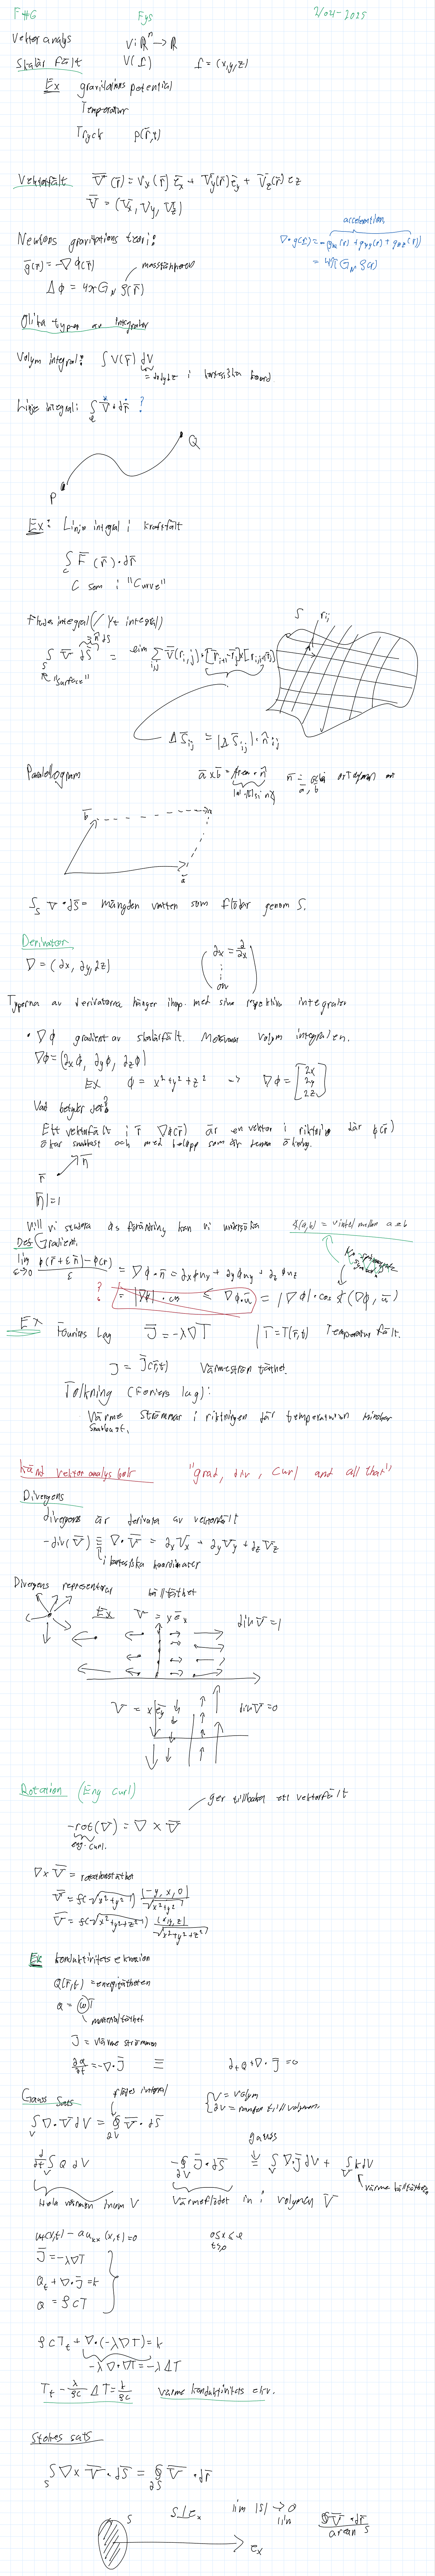 F#6 Fys 2/04-2025
Vektor analys V: ℝⁿ → ℝ
Skalär fält V(r) r = (x,y,z)
Ex gravitations potential
Temperatur
Tryck p(r̄,t)
Vektorfält V̄(r̄) = Vx(r̄) ēx + Vy(r̄) ēy + Vz(r̄) ez
V̄ = (Vx, Vy, Vz)
Newtons gravitations teori:
ḡ(r) = -∇φ(r̄)
Δφ = 4πG_N ρ(r̄)
acceleration
= 4πG_N ρ(r)
Olika typer av integraler
Volym integral: ∫V(r̄) dV
= dxdydz i kartesiska koord
Linje integral: ∫ V̄·dr̄ ?
P Q
Ex: Linje integral i kraftfält
∫ F̄(r̄)·dr̄
C som i "Curve"
Flödes integral (/Yt integral)
"Surface"
S r_ij
ΔS̄_ij = |ΔS̄_ij|·n̂_ij
Parallellogram
ā×b̄ = Area·n̄
b̄
ā
∫_S V·ds̄ = mängden vatten som flödar genom S.
Derivator
∇ = (∂x, ∂y, ∂z)
∂x = ∂/∂x
osv
Typerna av derivatorna hänger ihop med sina respektive integraler
• ∇φ gradient av skalärfält. Motsvarar volym integralen.
∇φ = (∂xφ, ∂yφ, ∂zφ)
EX φ = x²+y²+z² → ∇φ = [2x 2y 2z]
Vad betyder det?
Ett vektorfält i r̄ ∇φ(r̄) är en vektor i riktning där φ(r̄)
ökar snabbast och med belopp som är denna ökning.
r̄ n̄
|n̄| = 1
Def Gradient.
lim ε→0 (φ(r̄+εn̄)-φ(r))/ε = ∇φ·n̄
= |∇φ|·cos ∢(∇φ, n̄)
?
Ex Fouriers lag J̄ = -λ∇T | T = T(r̄,t) Temperatur fält.
J = J̄(r̄,t) Värmeström täthet.
Tolkning (Foriers lag):
Värme strömmar i riktningen där temperaturen minskar
snabbast.
Känd vektor analys bok "grad, div, curl and all that"
Divergens
divergens är derivata av vektorfält
-div(V̄) ≡ ∇·V̄ = ∂xVx + ∂yVy + ∂zVz
i kartesiska koordinater
Divergens representerar källtäthet
Ex V̄ = xēx div V̄ = 1
V̄ = xēy div V̄ = 0
Rotation (Eng Curl)
ger tillbaka ett vektorfält
-rot(V̄) = ∇×V̄
eng. curl.
V̄ = f(√(x²+y²)) (-y, x, 0)/√(x²+y²)
V̄ = f(√(x²+y²+z²)) (x,y,z)/√(x²+y²+z²)
Ex konduktivitets ekvation
Q(r̄,t) = energitätheten
J = värme strömmen
∂Q/∂t = -∇·J̄ ≡ ∂tQ + ∇·J̄ = 0
Gauss Sats flödes integral
∫_V ∇·V̄ dV = ∮_∂V V̄·dS̄
V = volym
∂V = randen till volymen.
gauss
d/dt ∫_V Q dV
-∮_∂V J̄·dS̄ = ∫_V ∇·J̄ dV + ∫_V k dV
Hela värmen inom V Värmeflödet in i volymen V
värme källtäthet
J̄ = -λ∇T
Q_t + ∇·J̄ = k
Q = ρcT
ρcT_t + ∇·(-λ∇T) = k
-λ∇·∇T = -λΔT
T_t - λ/ρc ΔT = k/ρc värme konduktivitets ekv.
Stokes sats
∫_S ∇×V̄·dS̄ = ∮_∂S V̄·dr̄
S
S⊥e_x lim |S| → 0
∮V̄·dr̄ / arean S
e_x